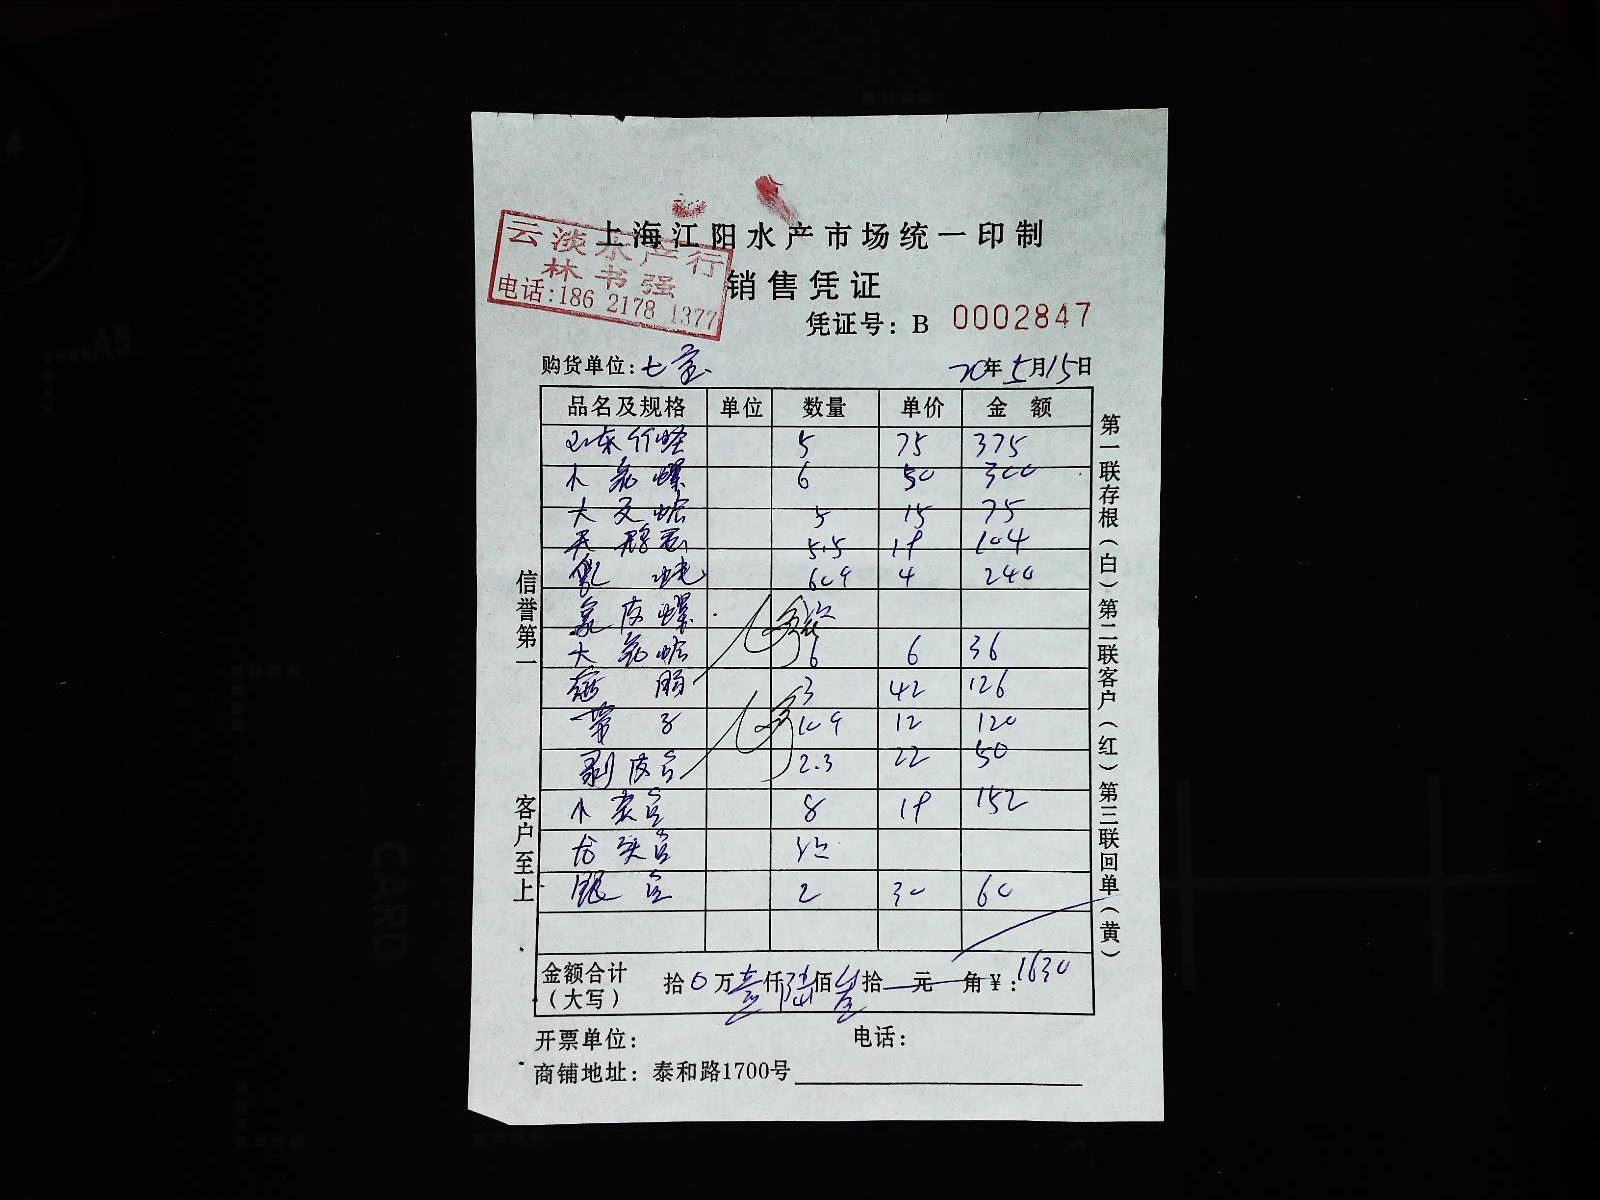 云淡水产行
林书强
电话:186 2178 1377
上海江阳水产市场统一印制
销售凭证
凭证号: B 0002847
购货单位: 七宝 20年5月15日
品名及规格 单位 数量 单价 金额
山东竹蛏 5 75 375
小 螺 6 50 300
大 蛤 5 15 75
5.5 19 104
609 4 240
皮螺
大 蛤 6 6 36
3 42 126
带子 109 12 120
剥皮鱼 2.3 22 50
小黄鱼 8 19 152
龙头鱼
银鱼 2 30 60
金额合计
(大写) 拾0万壹仟陆佰叁拾元角¥: 1630
开票单位: 电话:
商铺地址: 泰和路1700号
信誉第一 客户至上
第一联存根(白)第二联客户(红)第三联回单(黄)
CARD
A5